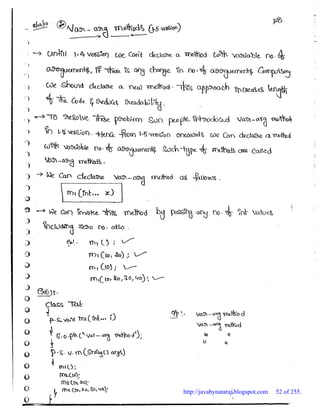 ② Var-arg methods (1.5 version)
→ Until 1.4 version we can't declare a method with variable no. of
arguments, If there is any change in no. of arguments compulsory
we should declare a new method. This approach increases length
of the code & reduces readability.
→ To resolve these problem Sun people introduced var-arg method
in 1.5 version. Hence from 1.5 version onwards we can declare a method
with variable no. of arguments such type of methods are called
var-arg methods.
→ We can declare var-arg method as follows.
m1 (int... x)
→ We can invoke this method by passing any no. of int values
including zero no. also.
ex:- m1 ( ) ; ✓
m1 (10, 20) ; ✓
m1 (10) ; ✓
m1 (10, 20, 30, 40) ; ✓
Ex:1:-
class Test
{
p. s. void m1 (int... i)
{
S.o.pln ("var-arg method");
}
p. s. v. m (String[] args)
{
m1();
m1(10);
m1(10, 20);
m1(10, 20, 30, 40);
}
o/p:- var-arg method
var-arg method
" "
" "
http://javabynataraj.blogspot.com 52 of 255.